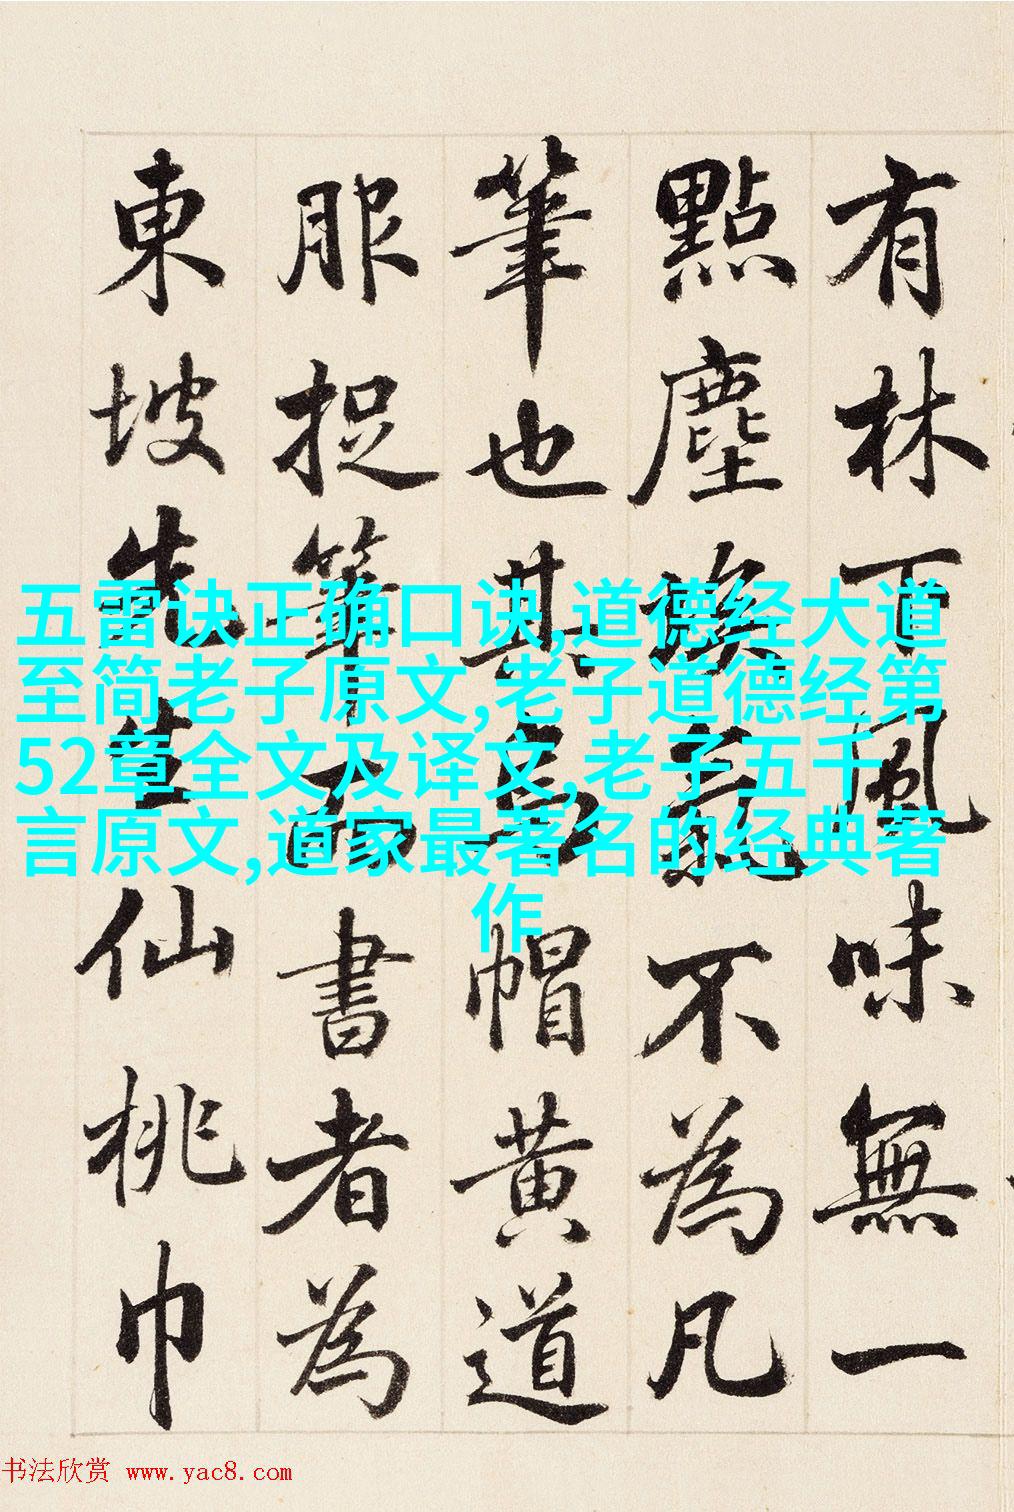 有林下風味無一
點塵埃氣不為凡
筆也其烏帽黃道
服捉筆而書者為
東坡先生仙桃巾
五雷诀正确口诀,道德经大道
至简老子原文,老子道德经第
52章全文及译文,老子五千
言原文,道家最著名的经典著
作
书法欣赏 www.yac8.com